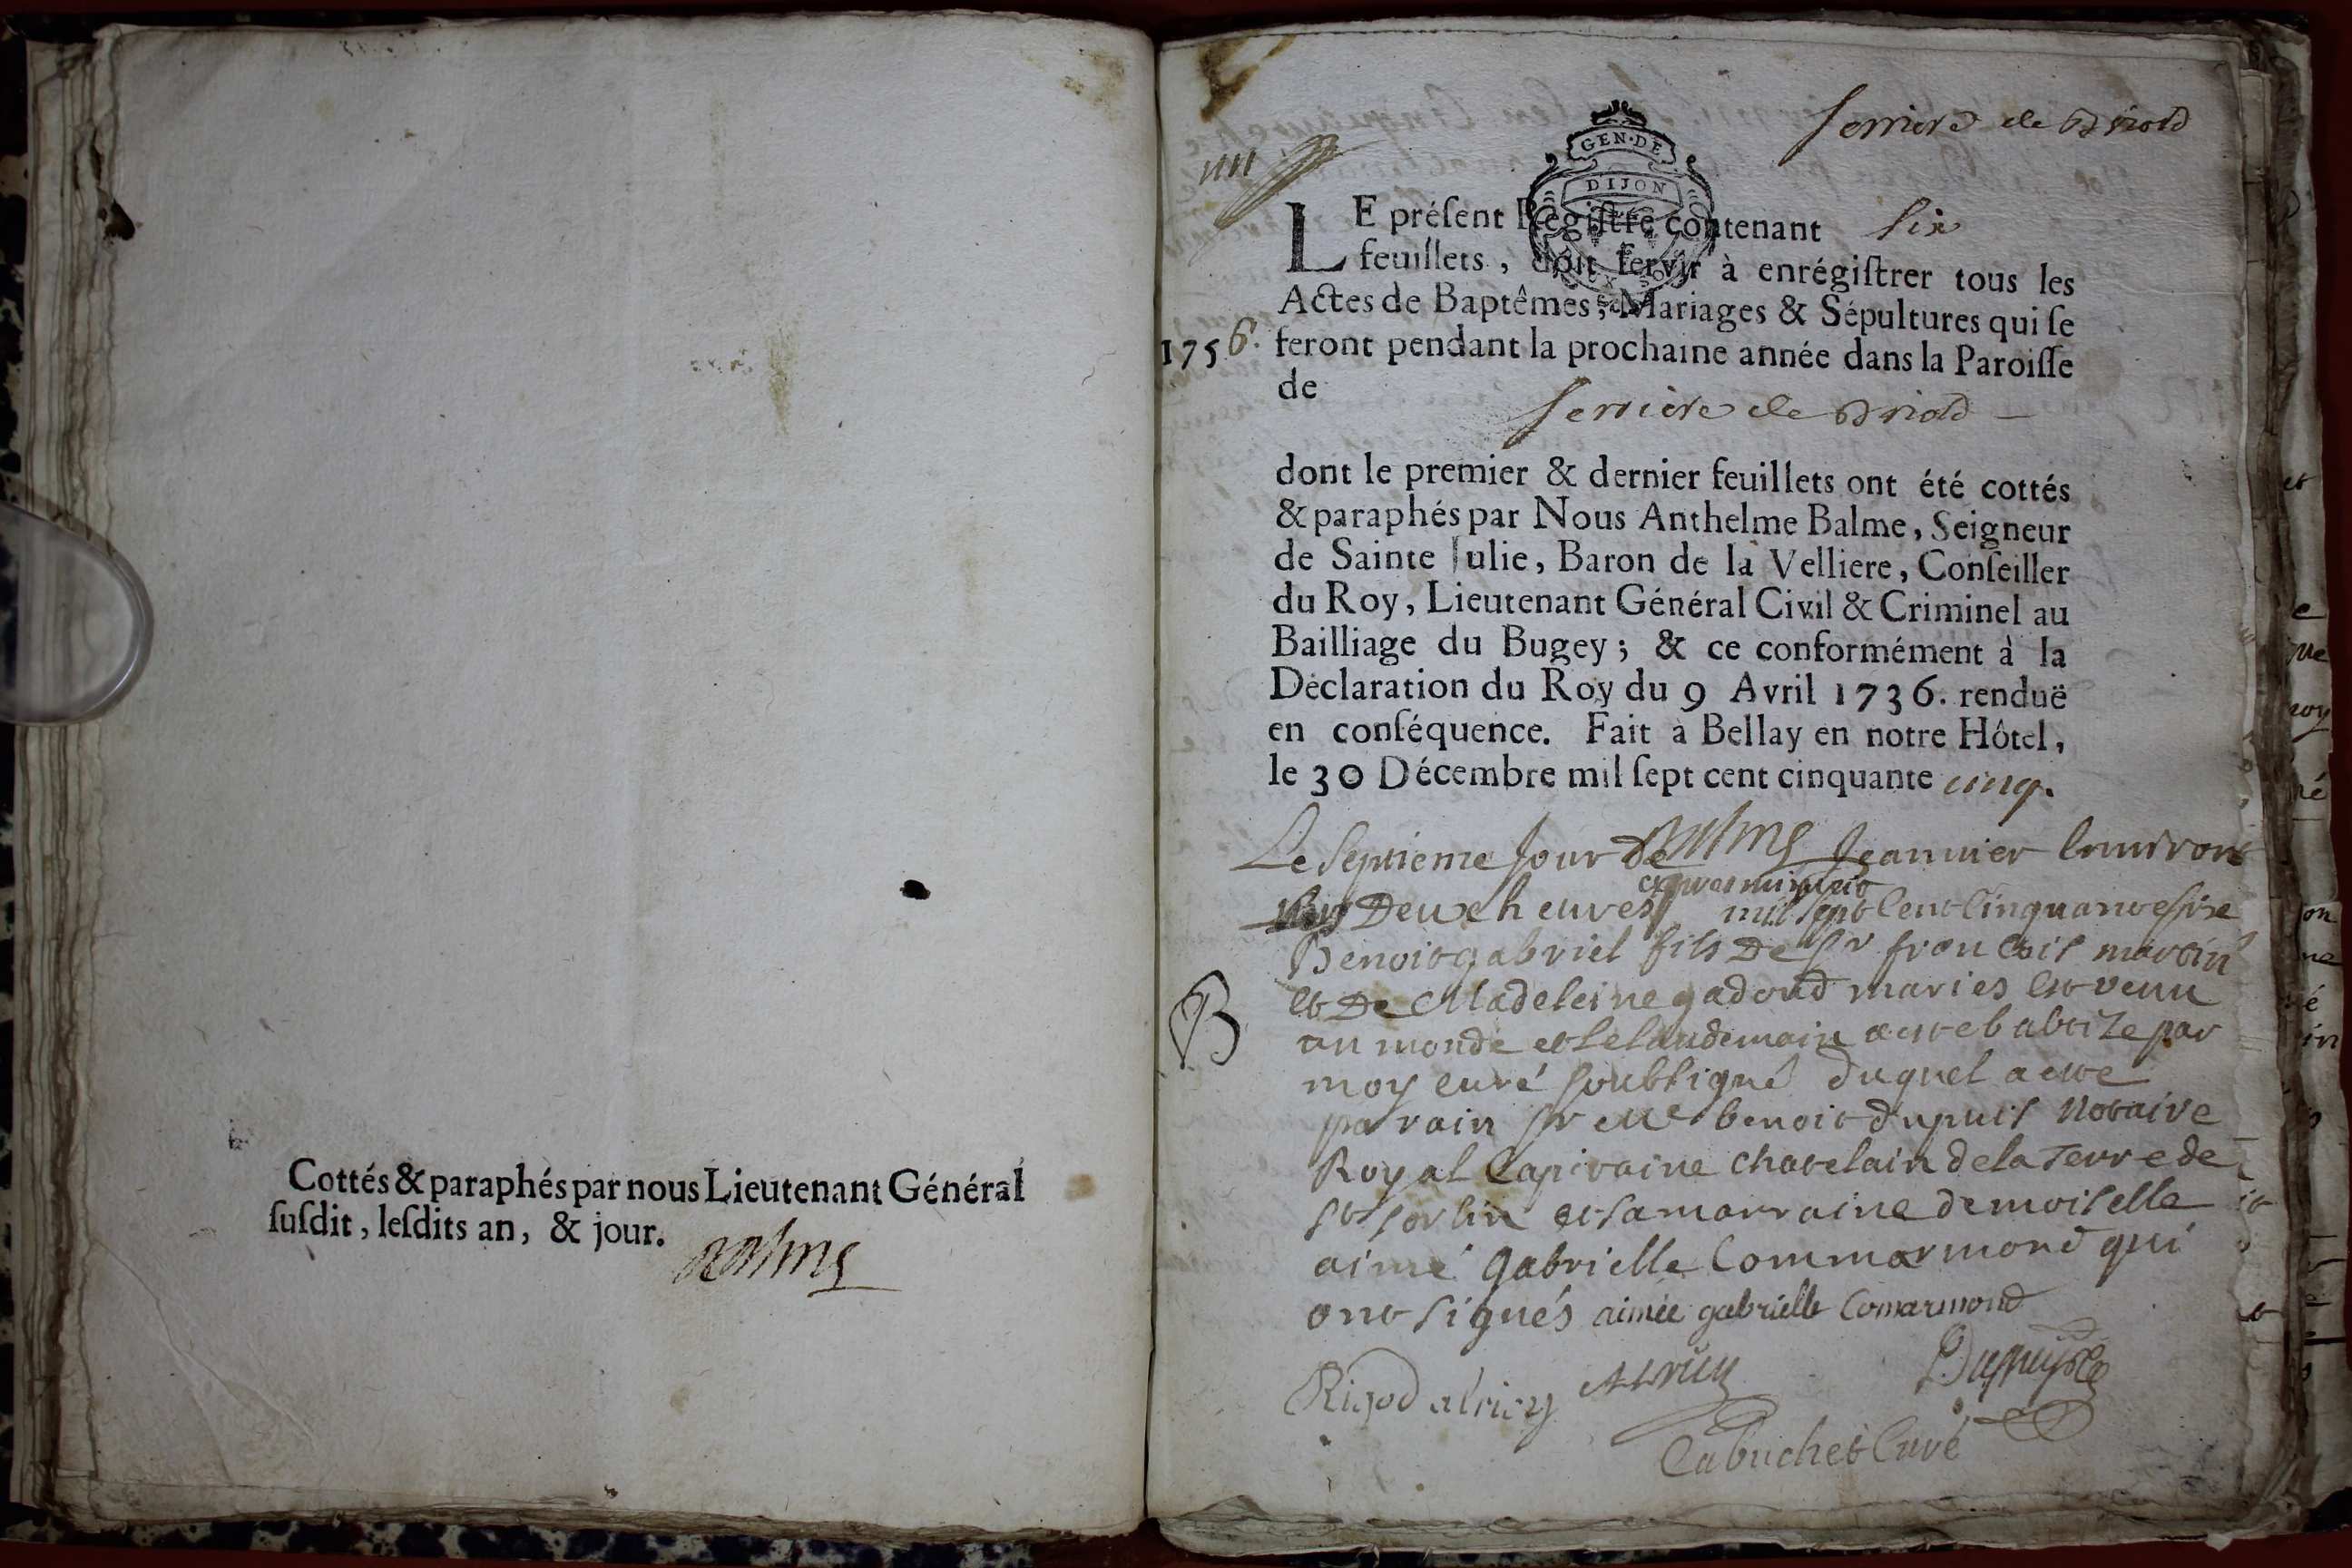 Cottés & paraphés par nous Lieutenant Général
suſdit, leſdits an, & jour.
Balme
Serriere de Briord
GEN·DE
DIJON
LE préſent Régiſtre contenant Six
feuillets, doit ſervir à enrégiſtrer tous les
Actes de Baptêmes, Mariages & Sépultures qui ſe
1756. feront pendant la prochaine année dans la Paroiſſe
de
Serriere de Briord
dont le premier & dernier feuillets ont été cottés
& paraphés par Nous Anthelme Balme, Seigneur
de Sainte Julie, Baron de la Velliere, Conſeiller
du Roy, Lieutenant Général Civil & Criminel au
Bailliage du Bugey; & ce conformément à la
Déclaration du Roy du 9 Avril 1736. renduë
en conſéquence. Fait à Bellay en notre Hôtel,
le 30 Décembre mil ſept cent cinquante cinq.
Balme
Le Septieme Jour de Jeanvier Environ
apres minuit
Deux heures mil sept Cent Cinquante six
Benoit gabriel fils De Sr francois martin
et De Madeleine gadoud maries Est venu
B
au monde et le landemain a este babtize par
moy curé soubsigné duquel a este
parain Sr Me benoit dupuis Notaire
Royal Capitaine chatelain de la Terre de
St Sorlin et sa marraine demoiselle
aimé gabrielle Commarmond qui
ont signés aimée gabrielle Comarmond
Rigod Dupuis
Cabuchet Curé